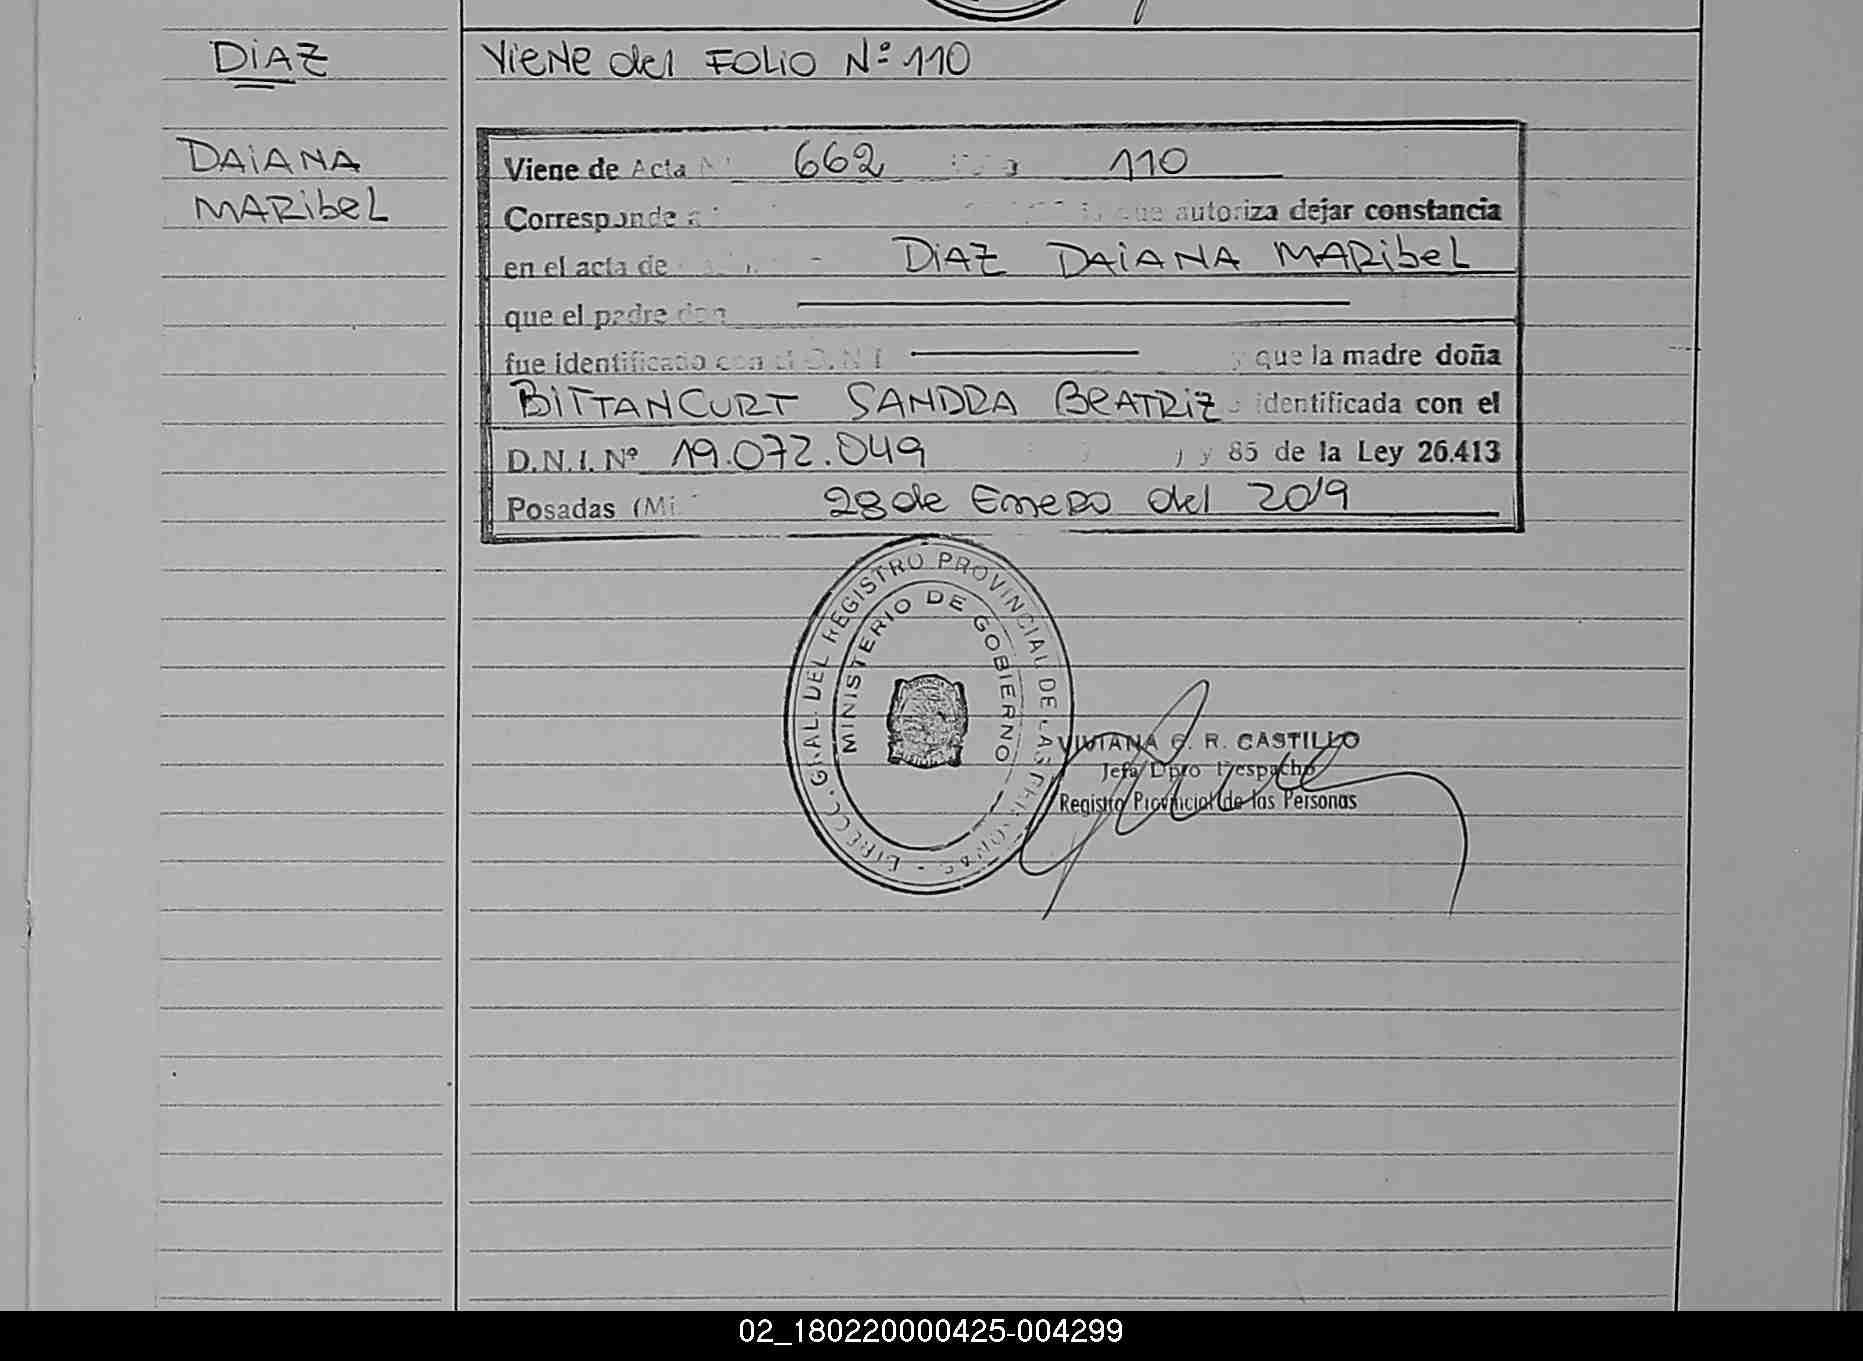 DIAZ
DAIANA
MARIBEL
Viene del FOLIO Nº 110
Viene de Acta Nº 662 110
Corresponde a que autoriza dejar constancia
en el acta de DIAZ DAIANA MARIBEL
que el padre don
fue identificado con el D.N.I y que la madre doña
BITTANCURT SANDRA BEATRIZ identificada con el
D.N.I. Nº 19.072.049 y 85 de la Ley 26.413
Posadas (Mi 28 de Enero del 2019
DIRECC. GRAL. DEL REGISTRO PROVINCIAL DE LAS PERSONAS
MINISTERIO DE GOBIERNO
VIVIANA G. R. CASTILLO
Jefa Dpto Despacho
Registro Provincial de las Personas
02_180220000425-004299